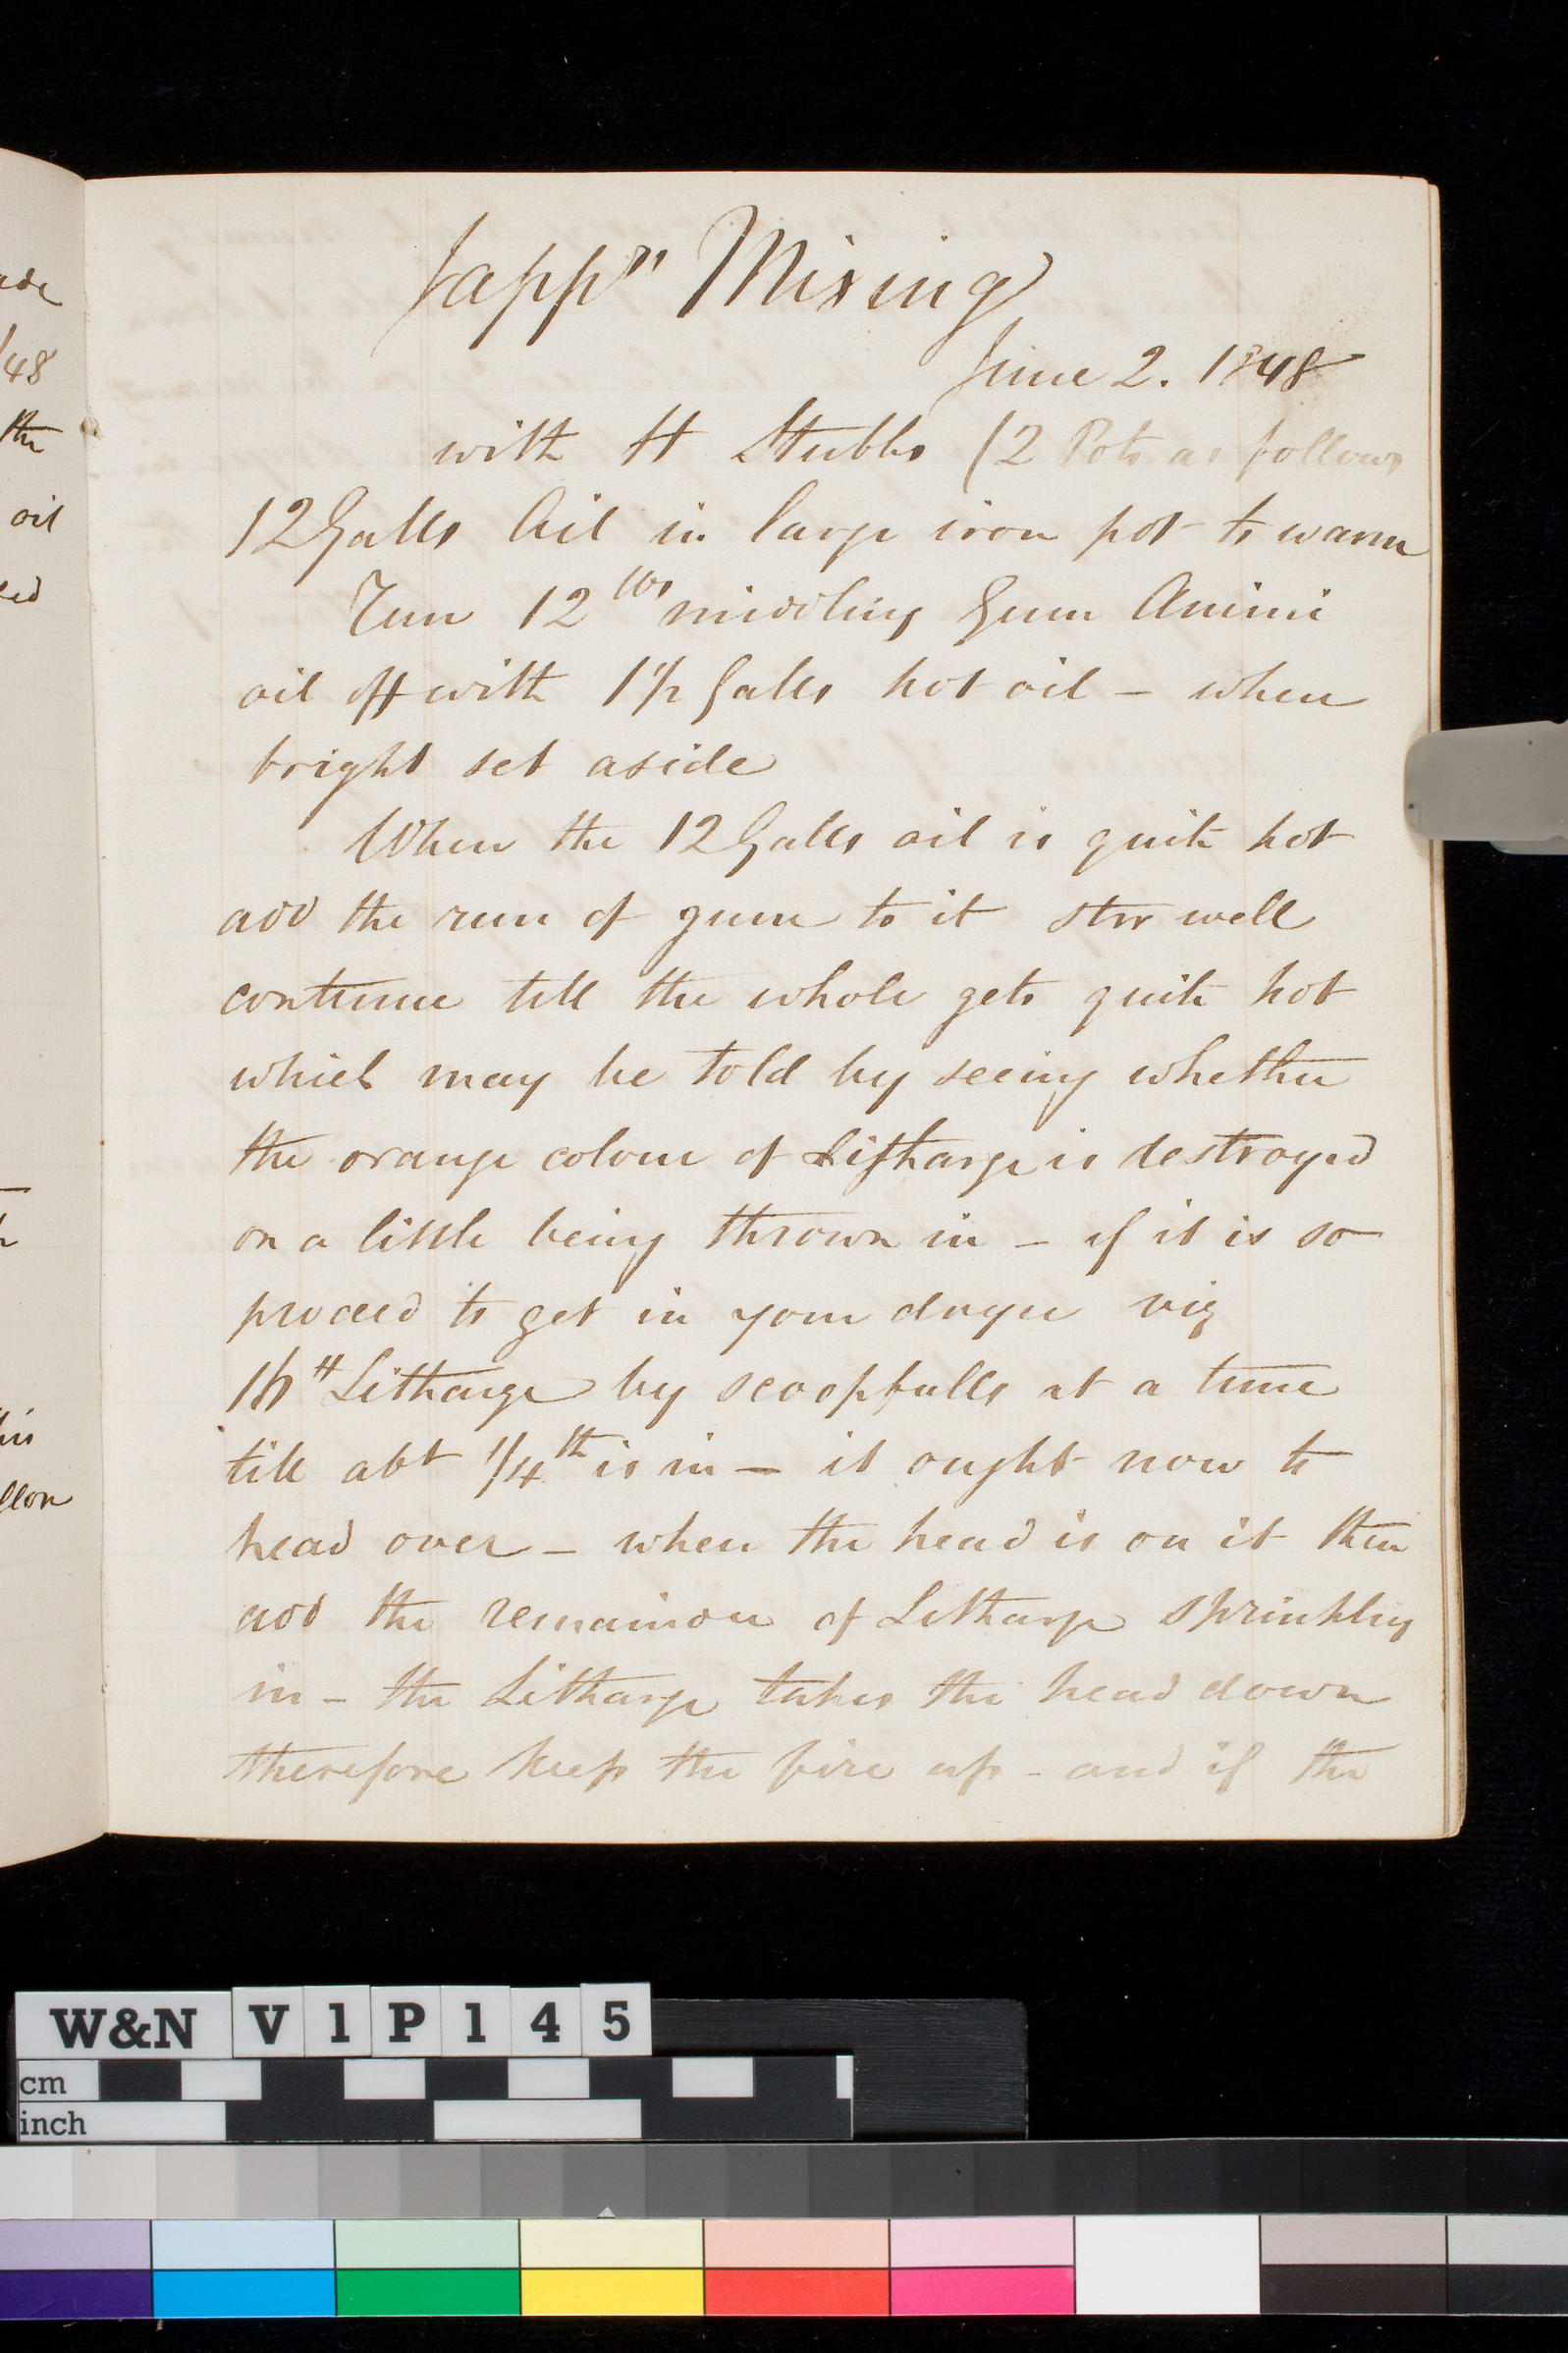 Japp" Mixing
June 2. 1848
with H Stubbs (2 Pots as follows
12 Galls Oil in large iron pot to warm
Run 12 lbs middling Gum Animi
oil off with 1 1/2 Galls hot oil – when
bright set aside
When the 12 Galls oil is quite hot
add the run of gum to it stir well
continue till the whole gets quite hot
which may be told by seeing whether
the orange colour of Litharge is destroyed
on a little being thrown in – if it is so
proceed to get in your dryer viz
Litharge by scoopfulls at a time
till abt 1/4th is in – it ought now to
head over – when the head is on it then
add the remainder of Litharge sprinkling
in – the Litharge takes the head down
therefore keep the fire up – and if the
/48
the
oil
llon
W&N V1P145
cm
inch